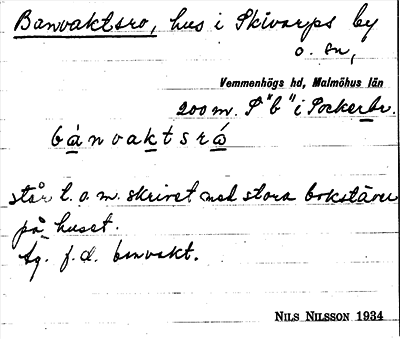 Banvaktsro, hus i Skivarps by
o. sn,
Vemmenhögs hd, Malmöhus län
200 m. S "b" i Sockerbr.
bànvaktsrǻ
står t.o.m. skrivet med stora bokstäver
på huset.
Äg. f.d. banvakt.
NILS NILSSON 1934